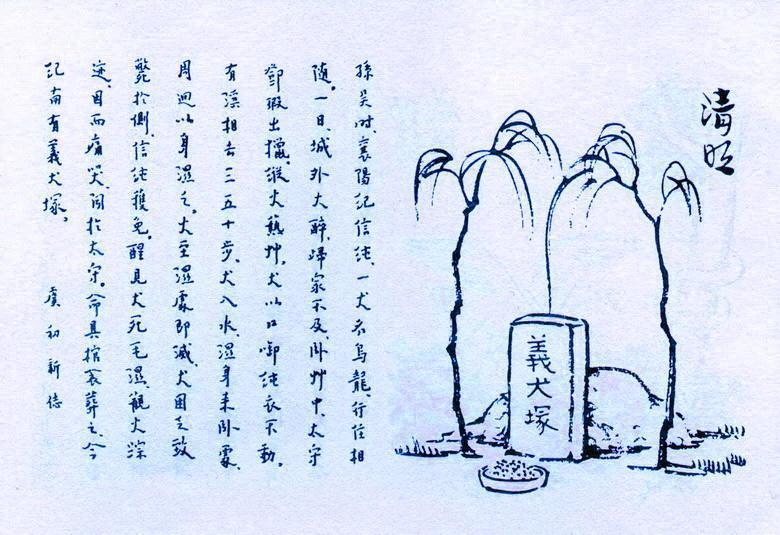 清明
孫吳时、襄陽紀信纯、一犬名烏龍、行住相
随。一日、城外大醉、歸家不及、卧艸中。太守
鄧瑕出獵、縱火爇艸。犬以口啣纯衣不動。
有溪相去三五十步、犬入水、濕身来卧處、
周迴以身濕之。火至濕處即滅。犬困乏致
斃於側、信纯獲免。醒見犬死毛濕、觀火踪
迹、因而痛哭。闻於太守。命具棺衾葬之。今
紀南有義犬塚。 虞初新
義犬塚